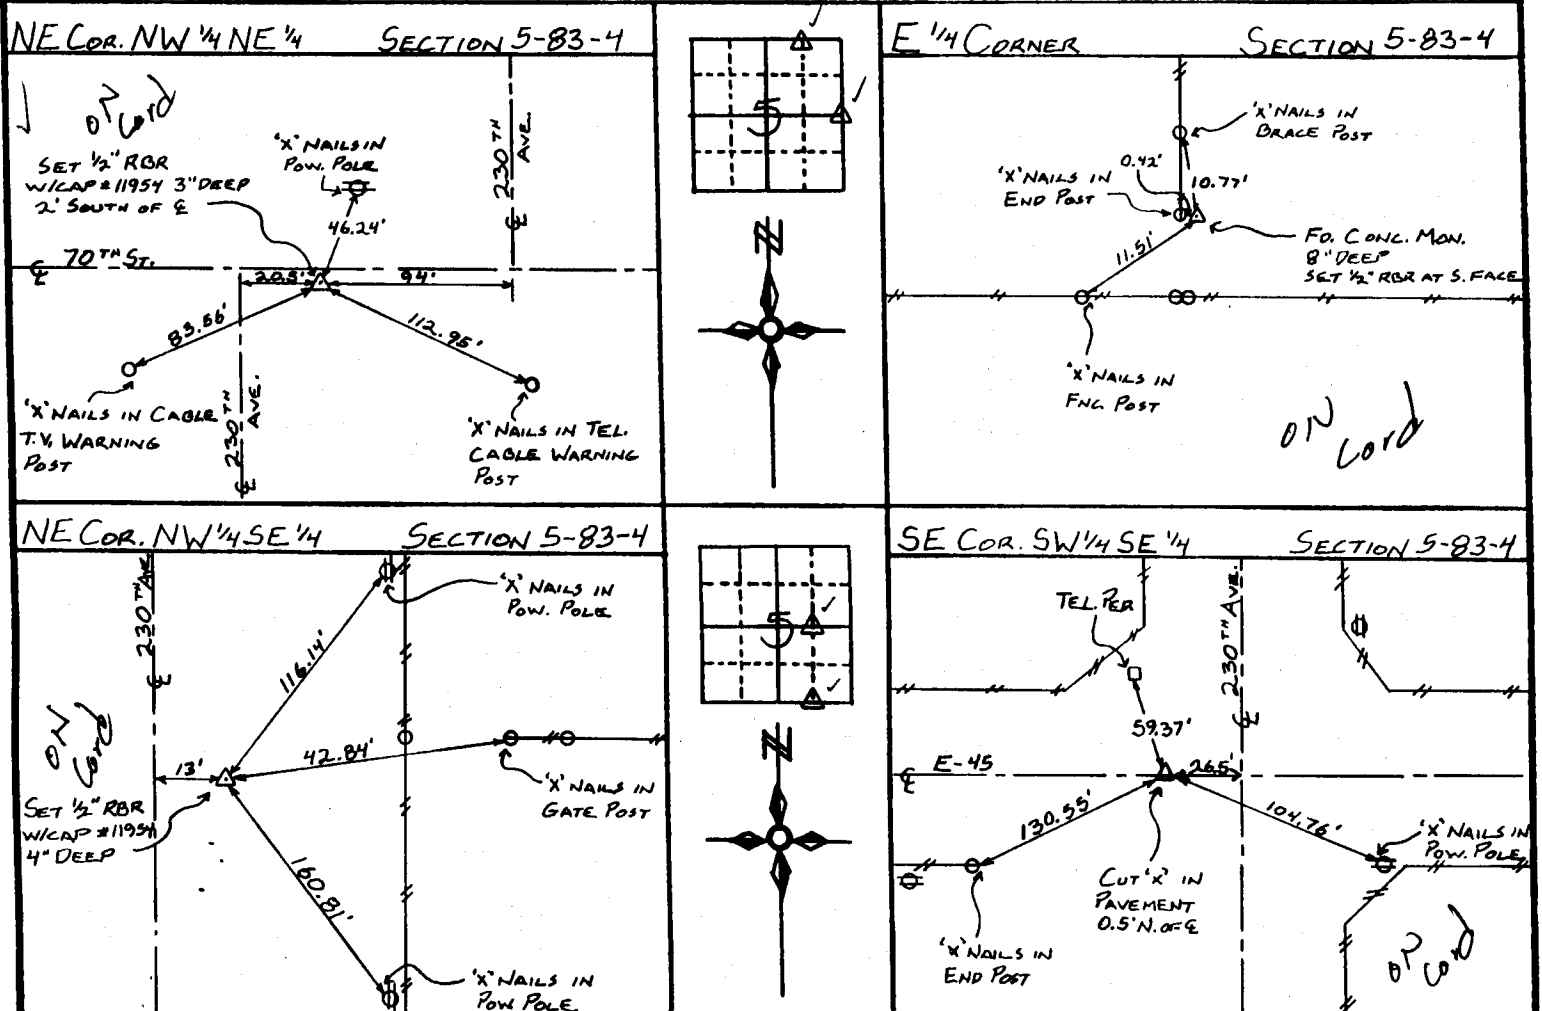 NE COR. NW 1/4 NE 1/4 SECTION 5-83-4
ON
Cord
SET 1/2" RBR
W/CAP #11954 3" DEEP
2' SOUTH OF ℄
'X' NAILS IN
POW. POLE
46.24'
230TH AVE.
℄
℄ 70TH ST.
20.5'
94'
83.56'
112.95'
'X' NAILS IN CABLE
T.V. WARNING
POST
230TH AVE.
℄
'X' NAILS IN TEL.
CABLE WARNING
POST
5
N
E 1/4 CORNER SECTION 5-83-4
'X' NAILS IN
BRACE POST
'X' NAILS IN
END POST
0.42'
10.77'
11.51'
FD. CONC. MON.
8" DEEP
SET 1/2" RBR AT S. FACE
'X' NAILS IN
FNC. POST
ON
Cord
NE COR. NW 1/4 SE 1/4 SECTION 5-83-4
230TH AVE
℄
'X' NAILS IN
POW. POLE
116.14'
ON
Cord
42.84'
13'
'X' NAILS IN
GATE POST
SET 1/2" RBR
W/CAP #11954
4" DEEP
160.81'
'X' NAILS IN
POW. POLE
5
N
SE COR. SW 1/4 SE 1/4 SECTION 5-83-4
TEL. PER
230TH AVE.
℄
59.37'
℄ E-45
26.5'
130.55'
104.76'
'X' NAILS IN
POW. POLE
CUT 'X' IN
PAVEMENT
0.5' N. OF ℄
'X' NAILS IN
END POST
ON
Cord